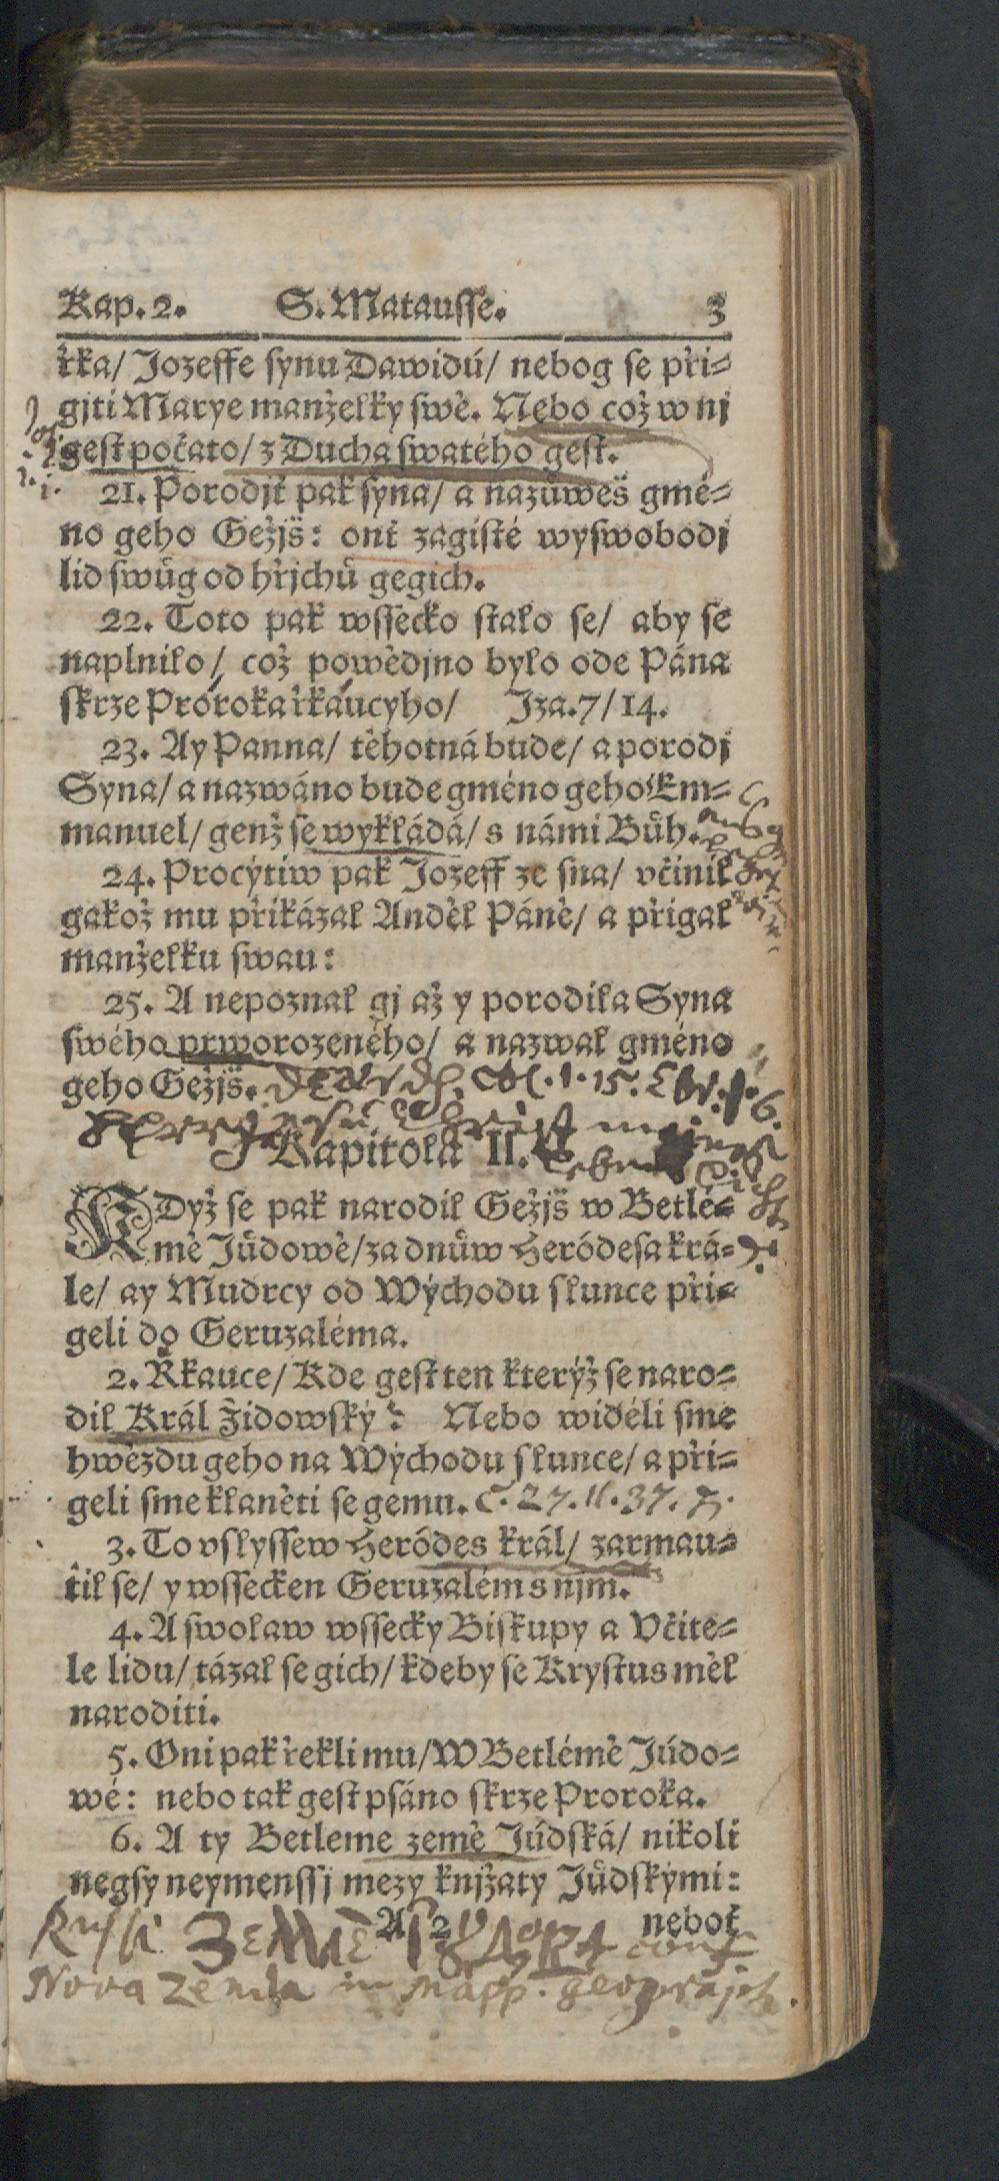 Kap. 2. S. Matausse. 3
řka/ Jozeffe synu Dawidú/ nebog se při-
gjti Marye manželky swè. Nebo což w nj
gest počato/ z Ducha swatého gest.
21. Porodjť pak syna/ a nazůweš gmé-
no geho Gežjš: onť zagisté wyswobodj
lid swůg od hřjchů gegich.
22. Toto pak wssecko stalo se/ aby se
naplnilo/ což powědjno bylo ode Pána
skrze Proroka řkaucyho/ Jza. 7/14.
23. Ay Panna/ těhotná bude/ a porodj
Syna/ a nazwáno bude gméno geho Em-
manuel/ genž se wykládá/ s námi Bůh.
24. Procýtiw pak Jozeff ze sna/ včinil
gakož mu přikázal Anděl Páně/ a přigal
manželku swau:
25. A nepoznal gj až y porodila Syna
swého prworozeného/ a nazwal gméno
geho Gežjš. Col. 1. 15. Ebr. 1. 6.
Kapitola II.
KDyž se pak narodil Gežjš w Betlé-
mě Jůdowě/ za dnůw Heródesa krá-
le/ ay Mudrcy od Wýchodu slunce při-
geli do Geruzaléma.
2. Řkauce/ Kde gest ten kterýž se naro-
dil Král Židowský? Nebo widěli sme
hwězdu geho na Wýchodu slunce/ a při-
geli sme klaněti se gemu. C. 27. 11. 37.
3. To vslyssew Heródes král/ zarmau-
til se/ y wssecken Geruzalém s njm.
4. A swolaw wssecky Biskupy a Včite-
le lidu/ tázal se gich/ kdeby se Krystus měl
naroditi.
5. Oni pak řekli mu/ W Betlémě Júdo-
wé: nebo tak gest psáno skrze Proroka.
6. A ty Betleme země Júdská/ nikoli
negsy neymenssj mezy knjžaty Jůdskými:
A 2 neboť
Russi conf
Nova Zemla in Mapp. geograph.